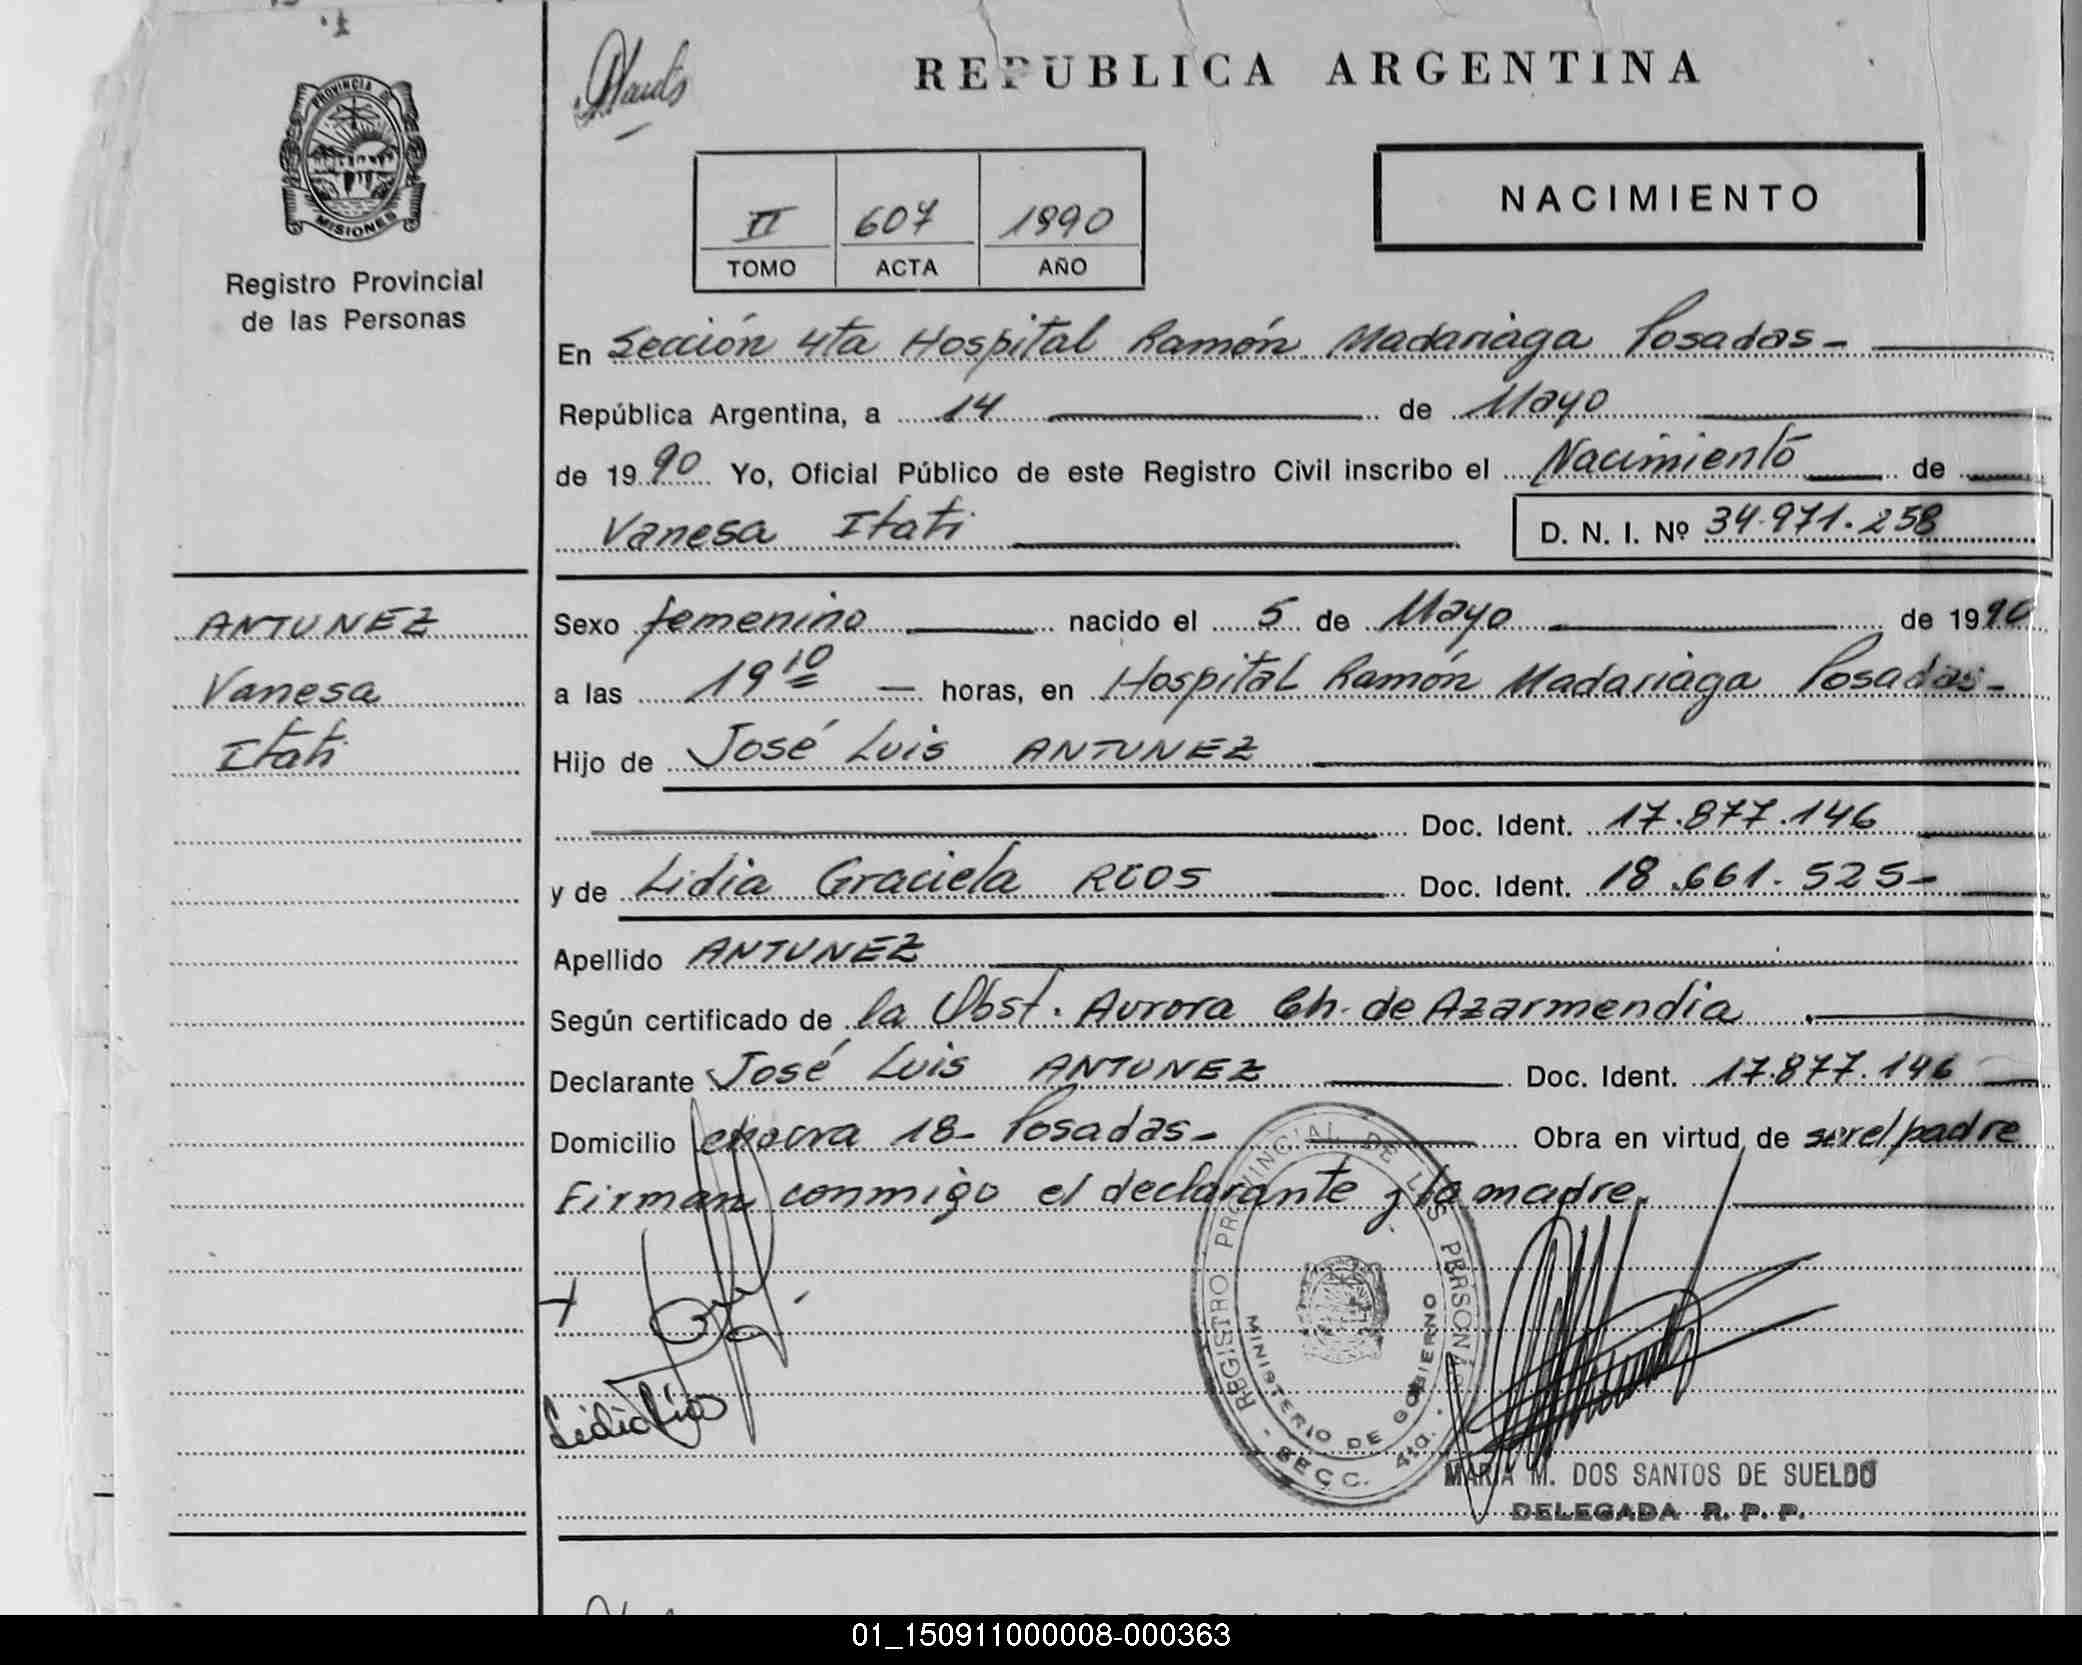 REPUBLICA ARGENTINA
PROVINCIA D
MISIONES
Registro Provincial
de las Personas
II 607 1990
TOMO ACTA AÑO
NACIMIENTO
En Sección 4ta Hospital Ramón Madariaga Posadas-
República Argentina, a 14 de Mayo
de 1990 Yo, Oficial Público de este Registro Civil inscribo el Nacimiento de
Vanesa Itati D. N. I. Nº 34.971.258
ANTUNEZ
Vanesa
Itati
Sexo femenino nacido el 5 de Mayo de 1990
a las 19 10 horas, en Hospital Ramón Madariaga Posadas-
Hijo de José Luis ANTUNEZ
Doc. Ident. 17.877.146
y de Lidia Graciela RIOS Doc. Ident. 18.661.525-
Apellido ANTUNEZ
Según certificado de la Obst. Aurora Ch. de Azarmendia
Declarante José Luis ANTUNEZ Doc. Ident. 17.877.146
Domicilio chacra 18- Posadas- Obra en virtud de ser el padre
Firman conmigo el declarante y la madre.
REGISTRO PROVINCIAL DE LAS PERSONAS
MINISTERIO DE GOBIERNO
- SECC. 4ta. -
Lidia Rios
MARIA M. DOS SANTOS DE SUELDO
DELEGADA R. P. P.
01_150911000008-000363